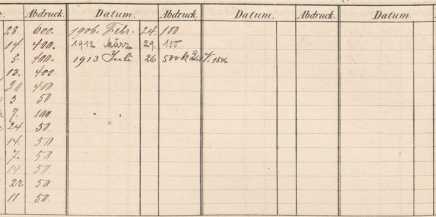 Abdruck. Datum. Abdruck. Datum. Abdruck. Datum.
28. 600. 1906. Febr. 24. 100
14 400. 1912 März 29. 150
3. 400. 1913 Juli 26 500
12. 400
20 400
3 50
7. 100.
24 50.
14. 50
7. 50
14 50
22 50
11 50.